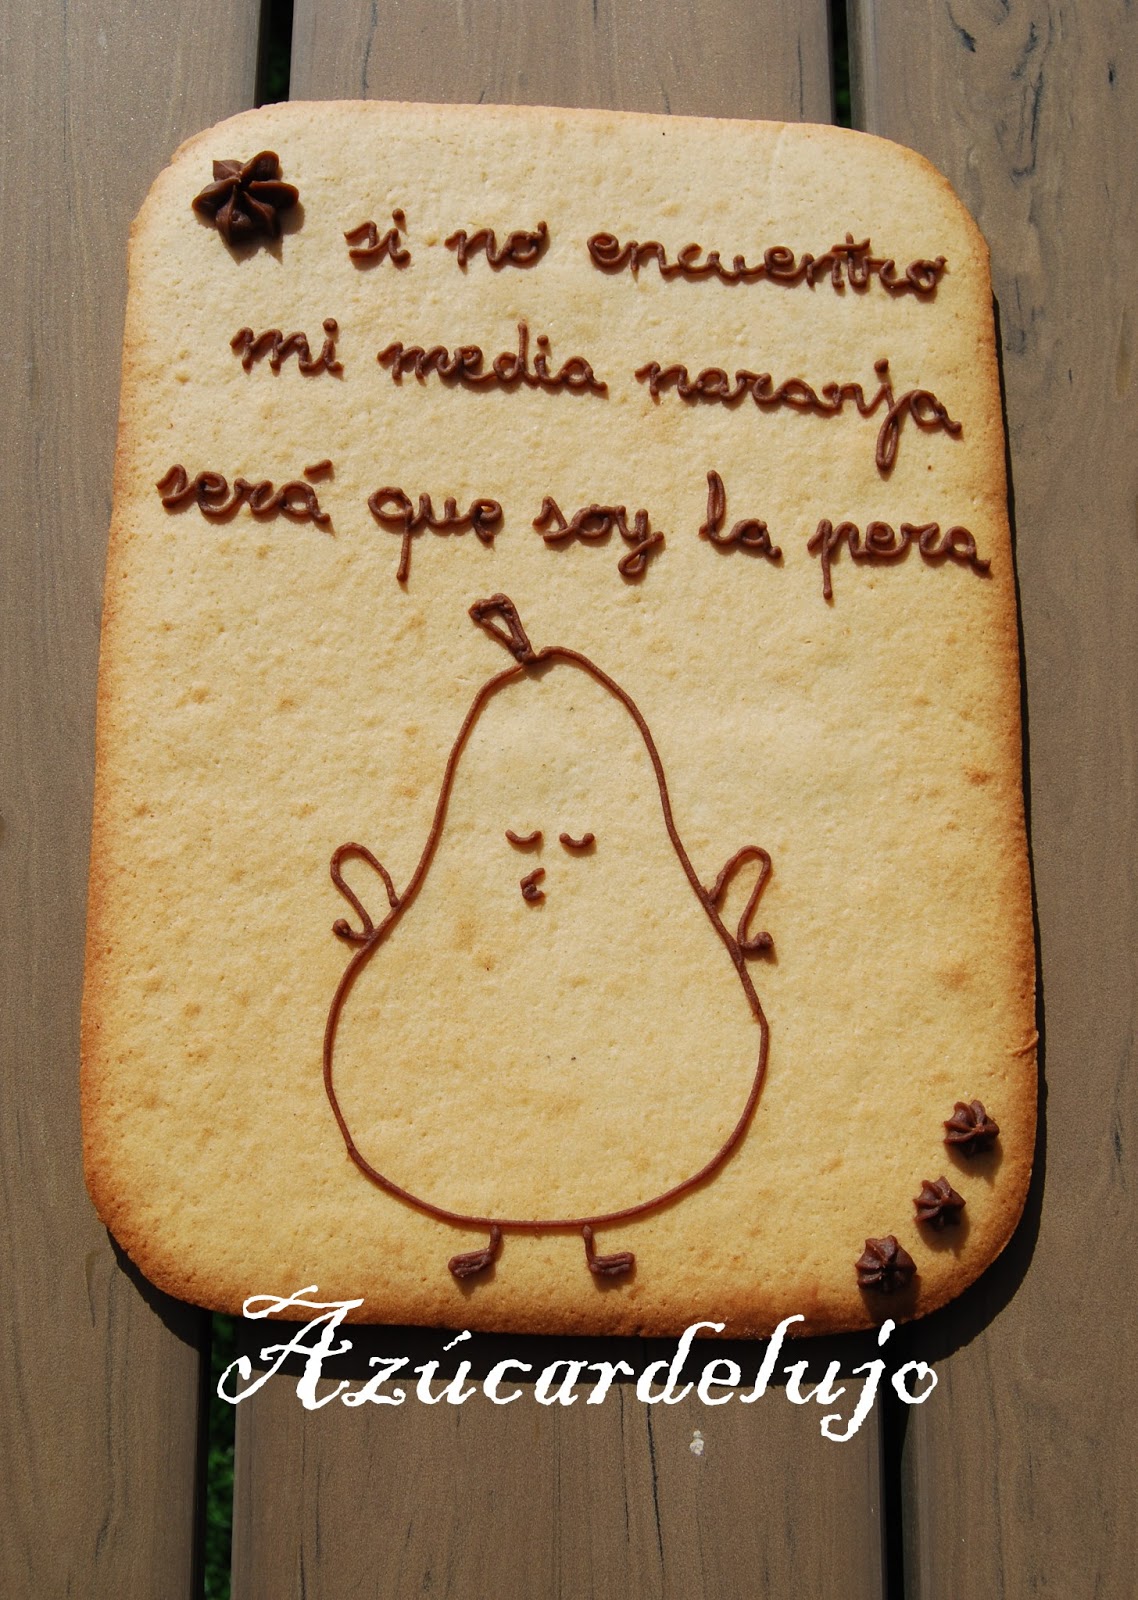 si no encuentro
mi media naranja
será que soy la pera
Azúcardelujo